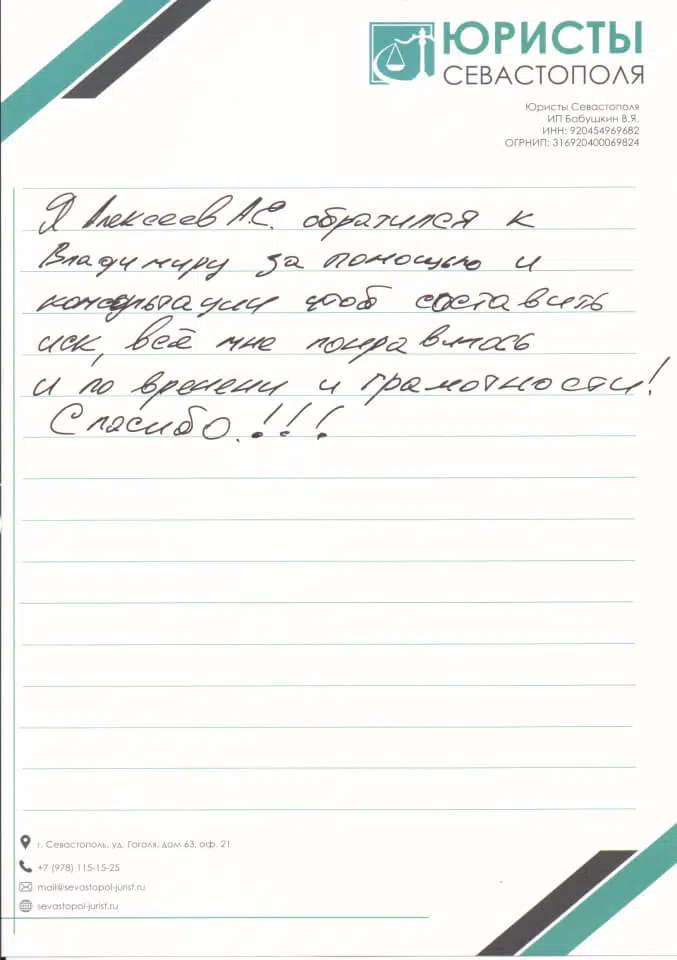 ЮРИСТЫ
СЕВАСТОПОЛЯ
Юристы Севастополя
ИП Бабушкин В.Я.
ИНН: 920454969682
ОГРНИП: 316920400069824
Я Алексеев А.С. обратился к
Владимиру за помощью и
консультации чтоб составить
иск, всё мне понравилось
и по времени и грамотности!
Спасибо.!!!
г. Севастополь, уд. Гоголя, дом 63, оф. 21
+7 (978) 115-15-25
mail@sevastopol-jurist.ru
sevastopol-jurist.ru